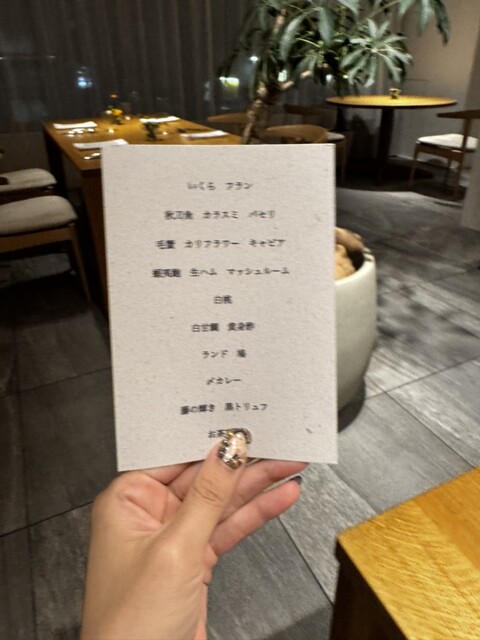 いくら フラン
秋刀魚 カラスミ パセリ
毛蟹 カリフラワー キャビア
生ハム マッシュルーム
白桃
白甘鯛 黄身酢
ランド 鳩
〆カレー
藤の輝き 黒トリュフ
お茶